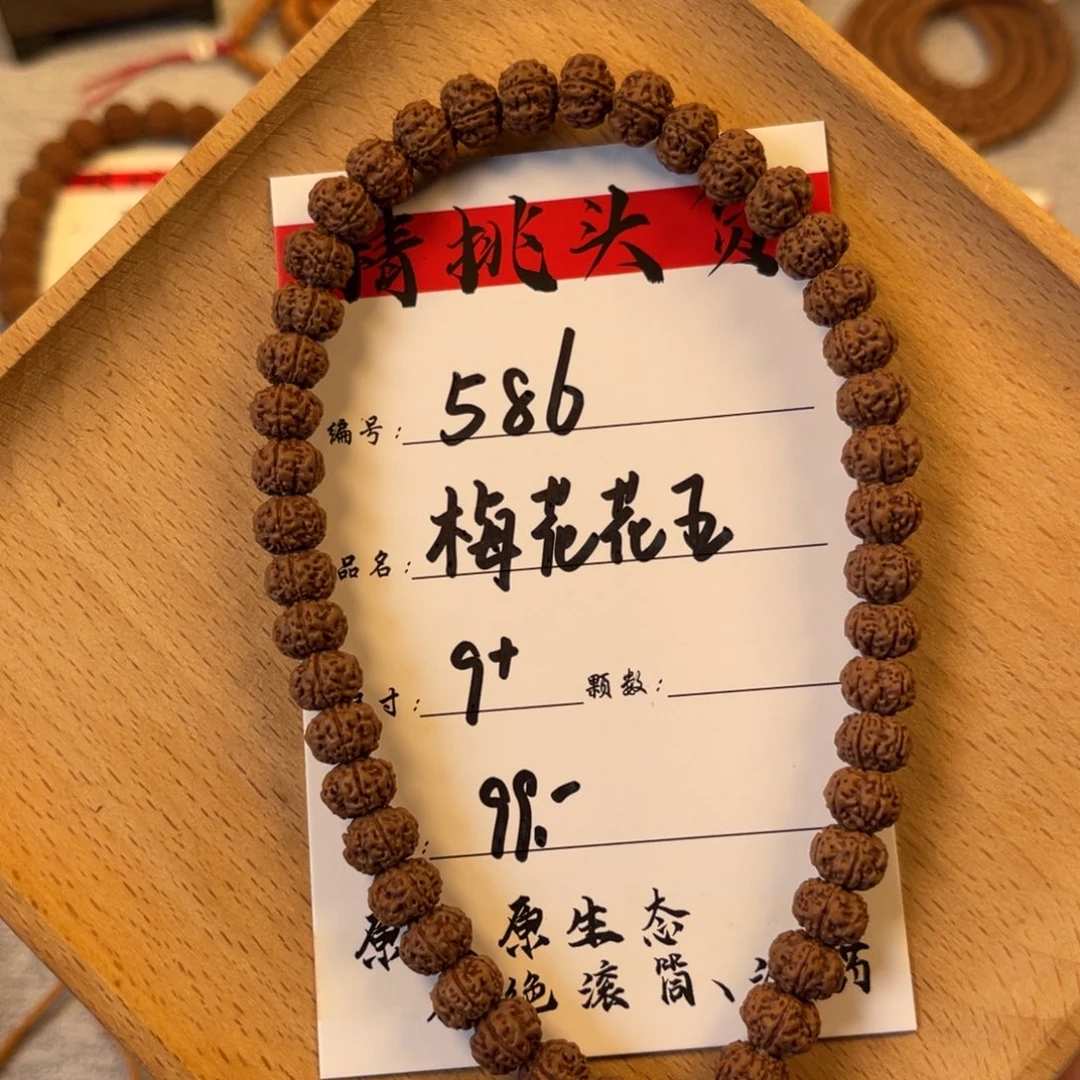 精挑头货
编号：586
品名：梅花花玉
尺寸：9+ 颗数：
99.-
原 原生态
绝滚筒、